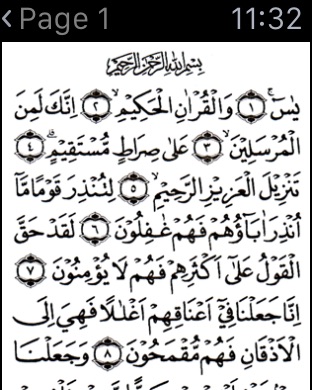 Page 1
11:32
بِسْمِ اللهِ الرَّحْمٰنِ الرَّحِيْمِ
يٰسٓ ۚ ﴿١﴾ وَالْقُرْاٰنِ الْحَكِيْمِ ۙ ﴿٢﴾ اِنَّكَ لَمِنَ
الْمُرْسَلِيْنَ ۙ ﴿٣﴾ عَلٰى صِرَاطٍ مُّسْتَقِيْمٍ ۗ ﴿٤﴾
تَنْزِيْلَ الْعَزِيْزِ الرَّحِيْمِ ۙ ﴿٥﴾ لِتُنْذِرَ قَوْمًا مَّآ
اُنْذِرَ اٰبَآؤُهُمْ فَهُمْ غٰفِلُوْنَ ﴿٦﴾ لَقَدْ حَقَّ
الْقَوْلُ عَلٰٓى اَكْثَرِهِمْ فَهُمْ لَا يُؤْمِنُوْنَ ﴿٧﴾
اِنَّا جَعَلْنَا فِيْٓ اَعْنَاقِهِمْ اَغْلٰلًا فَهِيَ اِلَى
الْاَذْقَانِ فَهُمْ مُّقْمَحُوْنَ ﴿٨﴾ وَجَعَلْنَا